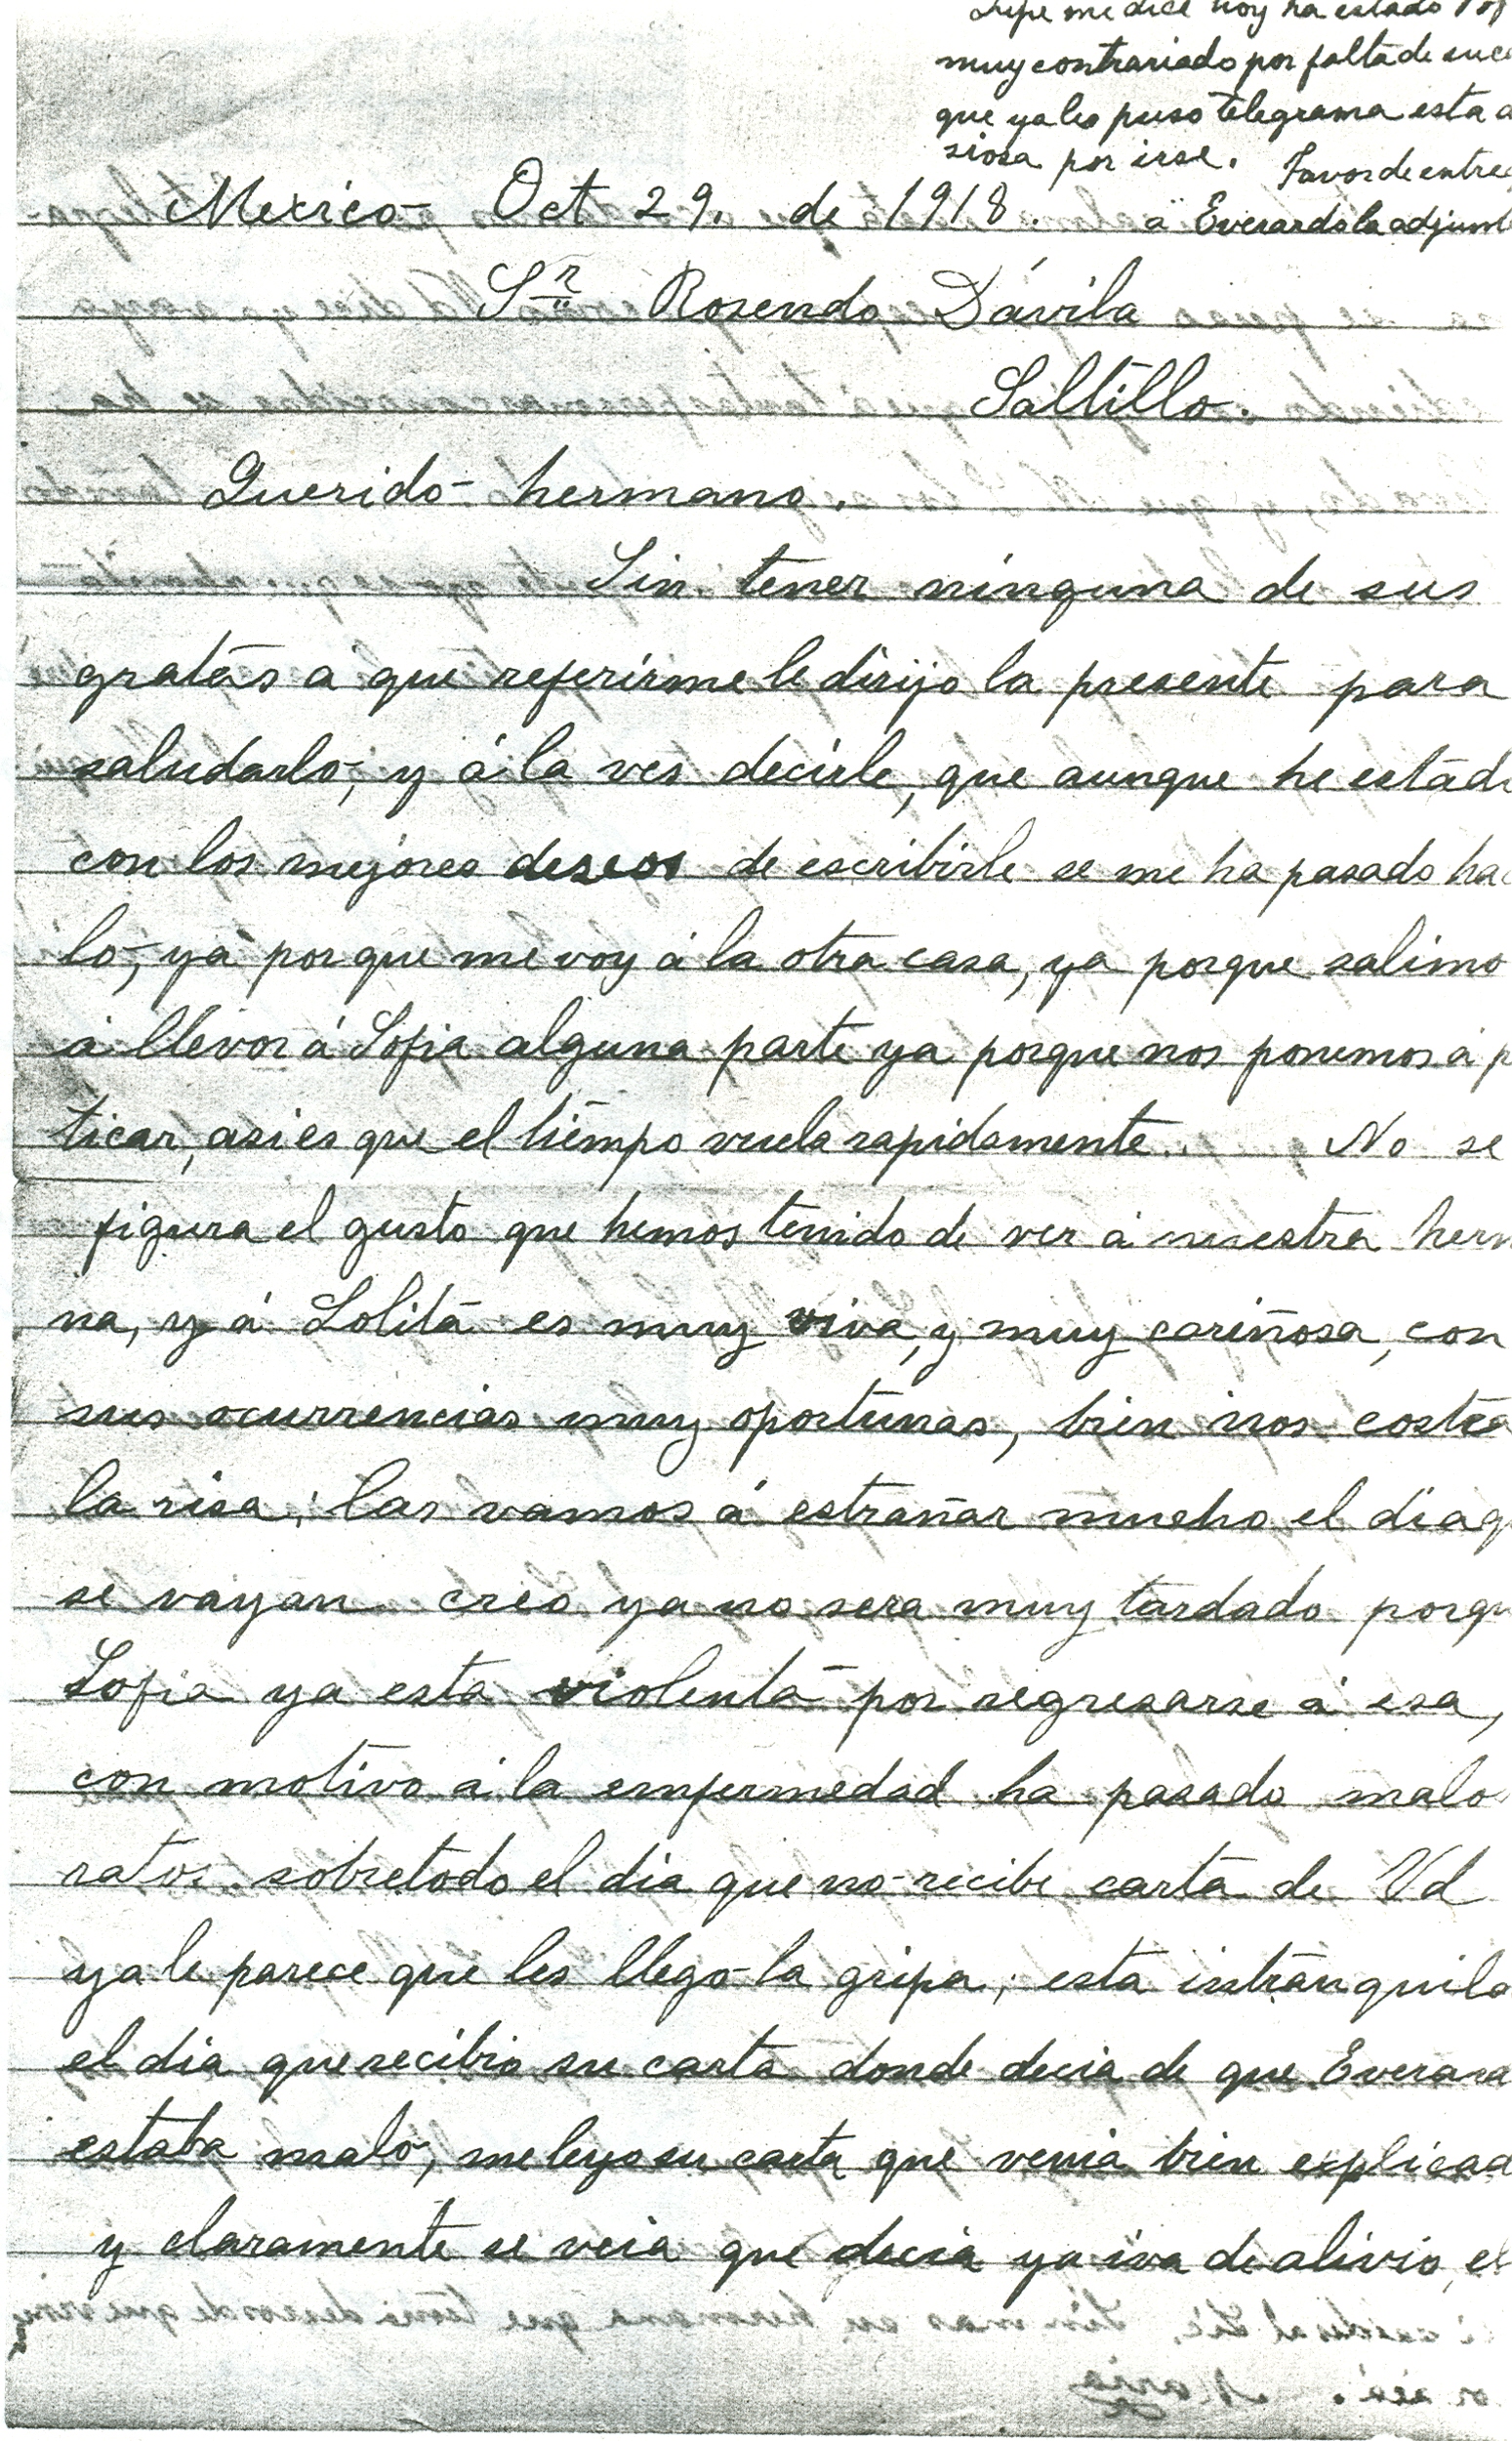 Lupe me dice hoy ha estado
muy contrariado por falta de
que ya les puso telegrama esta
siosa por irse. Favor de entre
a Everardo la adjunt
Mexico Oct 29. de 1918.
Sr Rosendo Dávila
Saltillo.
Querido hermano.
Sin tener ninguna de sus
gratas á que referirme le dirijo la presente para
saludarlo, y á la ves decirle, que aunque he estad
con los mejores deseos de escribirle se me ha pasado hac
lo, ya porque me voy á la otra casa, ya porque salimo
á llevar á Sofia alguna parte ya porque nos ponemos á p
ticar, asi es que el tiempo vuela rapidamente. No se
figura el gusto que hemos tenido de ver á nuestra herm
na, y á Lolita es muy viva, y muy cariñosa, con
sus ocurrencias muy oportunas, bien nos costea
la risa; las vamos á estrañar mucho el dia q
se vayan creo ya no sera muy tardado porqu
Sofia ya esta violenta por regresarse á esa,
con motivo á la enfermedad ha pasado malo
ratos sobretodo el dia que no recibe carta de Vd
ya le parece que les llego la gripa; esta intranquila
el dia que recibio su carta donde decia de que Everard
estaba malo, me leyo su carta que venia bien explicad
y claramente se veia que decia ya iva de alivio, el